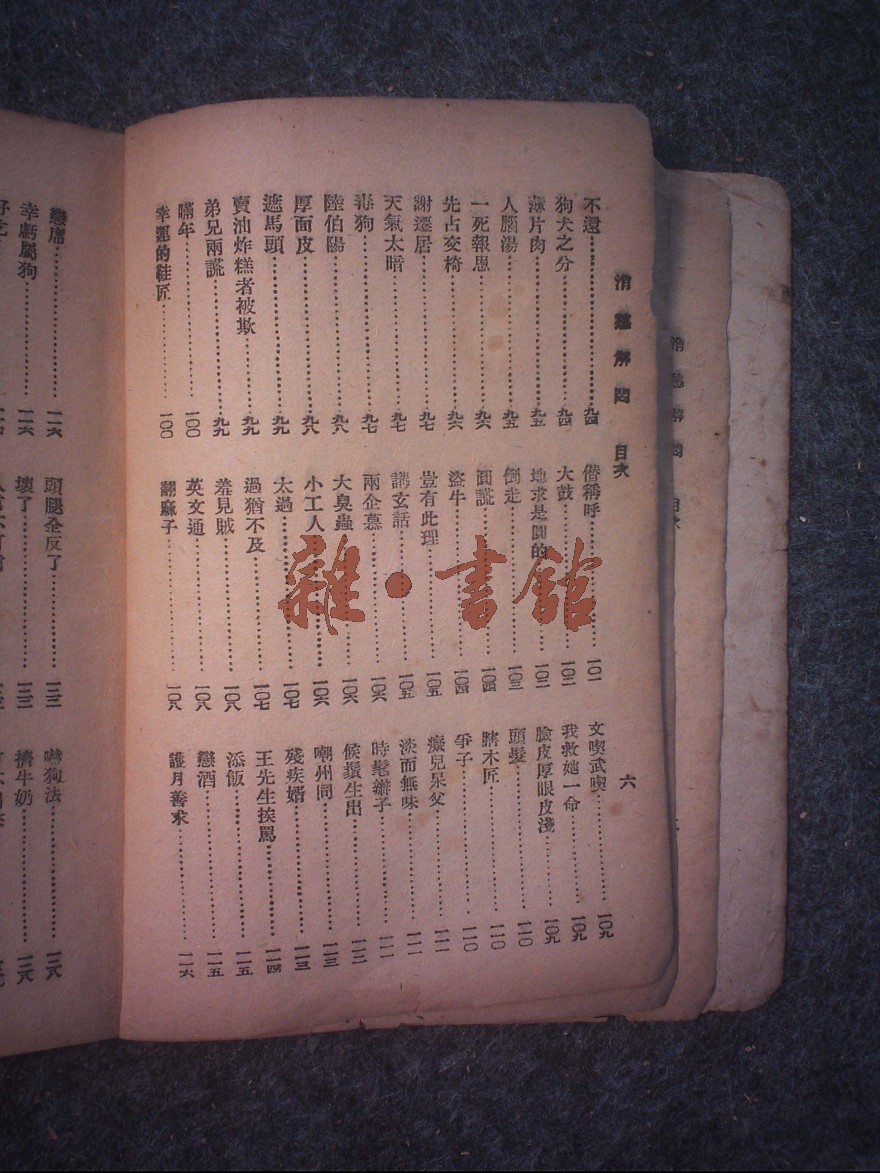 消愁解悶 目次 六
不還 九四
狗犬之分 九四
薄片肉 九五
人腦湯 九五
一死報恩 九六
先占交椅 九六
謝遷居 九七
天氣太暗 九七
毒狗 九七
陸伯陽 九八
厚面皮 九八
遮馬頭 九九
賣油炸糕者被欺 九九
弟兄兩謊 九九
瞞年 一〇〇
幸運的鞋匠 一〇〇
僭稱呼 一〇一
大鼓 一〇二
地求是圓的 一〇二
倒走 一〇三
圓謊 一〇四
盜牛 一〇四
豈有此理 一〇五
講玄話 一〇五
兩企慕 一〇六
大臭蟲 一〇六
小工人 一〇六
太過 一〇七
過猶不及 一〇七
羞見賊 一〇八
英文通 一〇八
翻麻子 一〇八
文喫武喫 一〇九
我救她一命 一〇九
臉皮厚眼皮淺 一〇九
頭髮 一一〇
瞎木匠 一一〇
爭子 一一〇
癡兒呆父 一一一
淡而無味 一一一
時髦辮子 一一一
候鬚生出 一一二
嘲州同 一一三
殘疾婿 一一三
王先生挨罵 一一四
添飯 一一五
戀酒 一一五
護月善求 一一六
戀席 一一六
幸虧屬狗 一一六
頭腿全反了 一三二
壞了 一三三
嚇狗法 一三八
擠牛奶 一三八
雜·書館